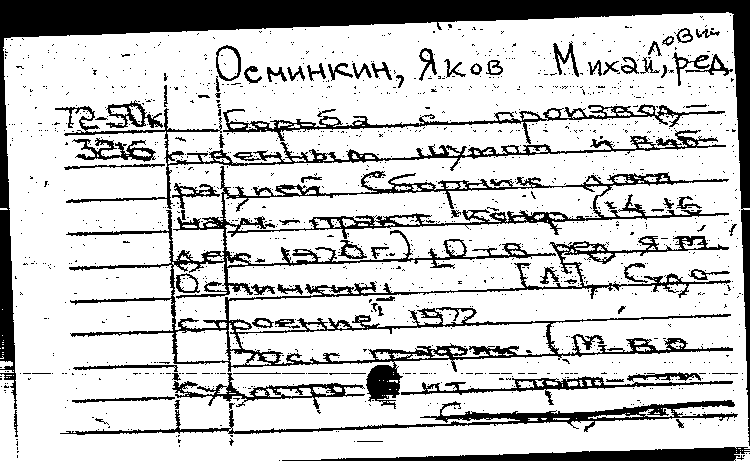 Осминкин, Яков Михайлович, ред.
72-50к Борьба с производ-
3216 ственным шумом и виб-
рацией. Сборник докл.
науч.-практ. конф. (14-16
дек. 1970 г.). Отв. ред. Я.М.
Осминкин. [Л.], „Судо-
строение", 1972
70 с. с график. (М-во
судостроит. пром-сти